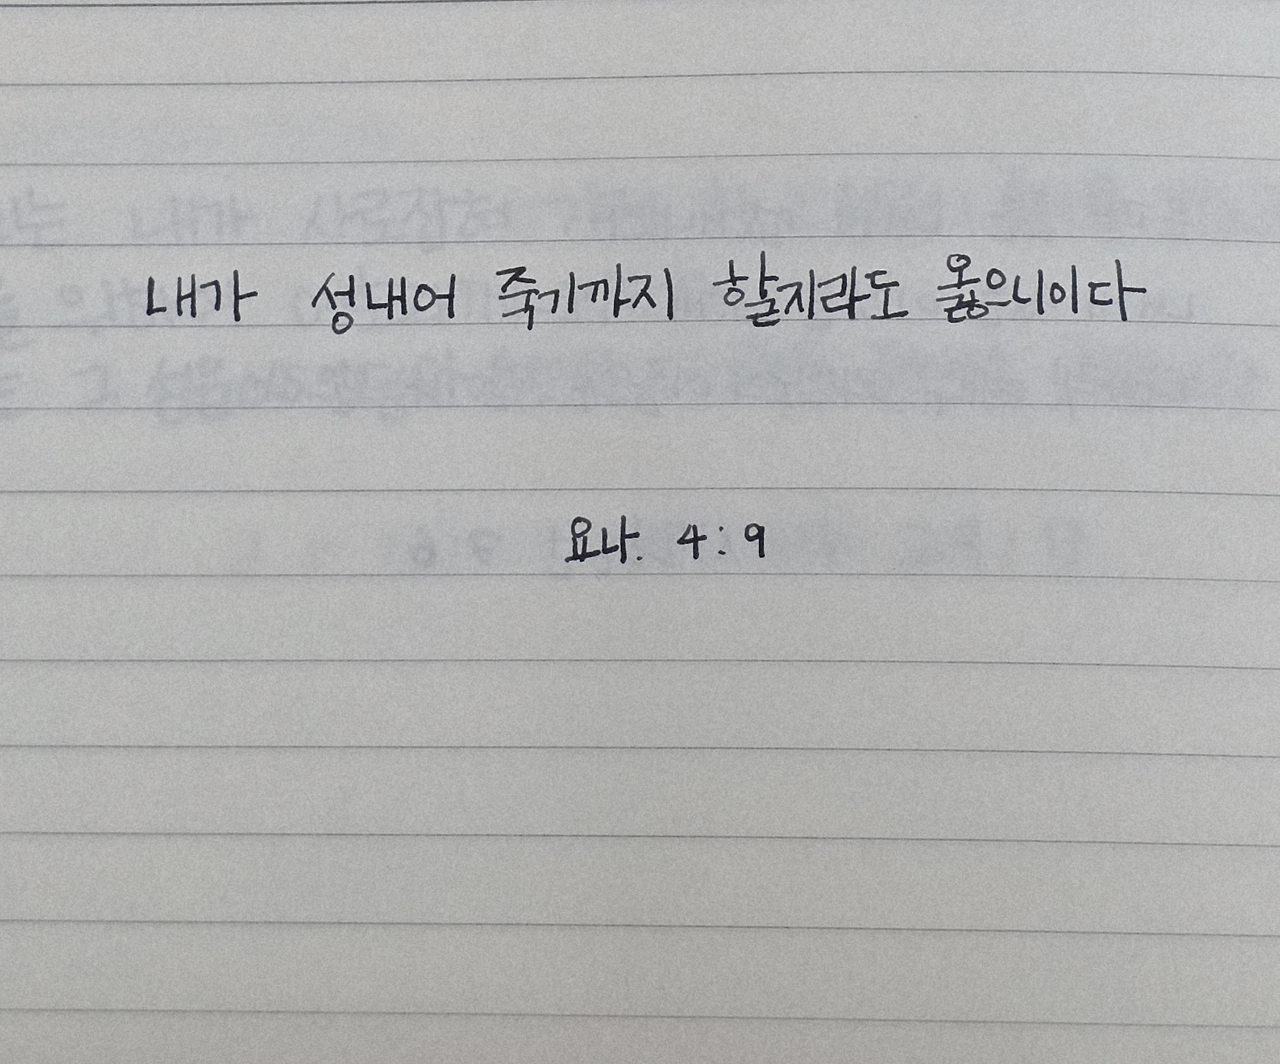 내가 성내어 죽기까지 할지라도 옳으니이다
요나. 4:9